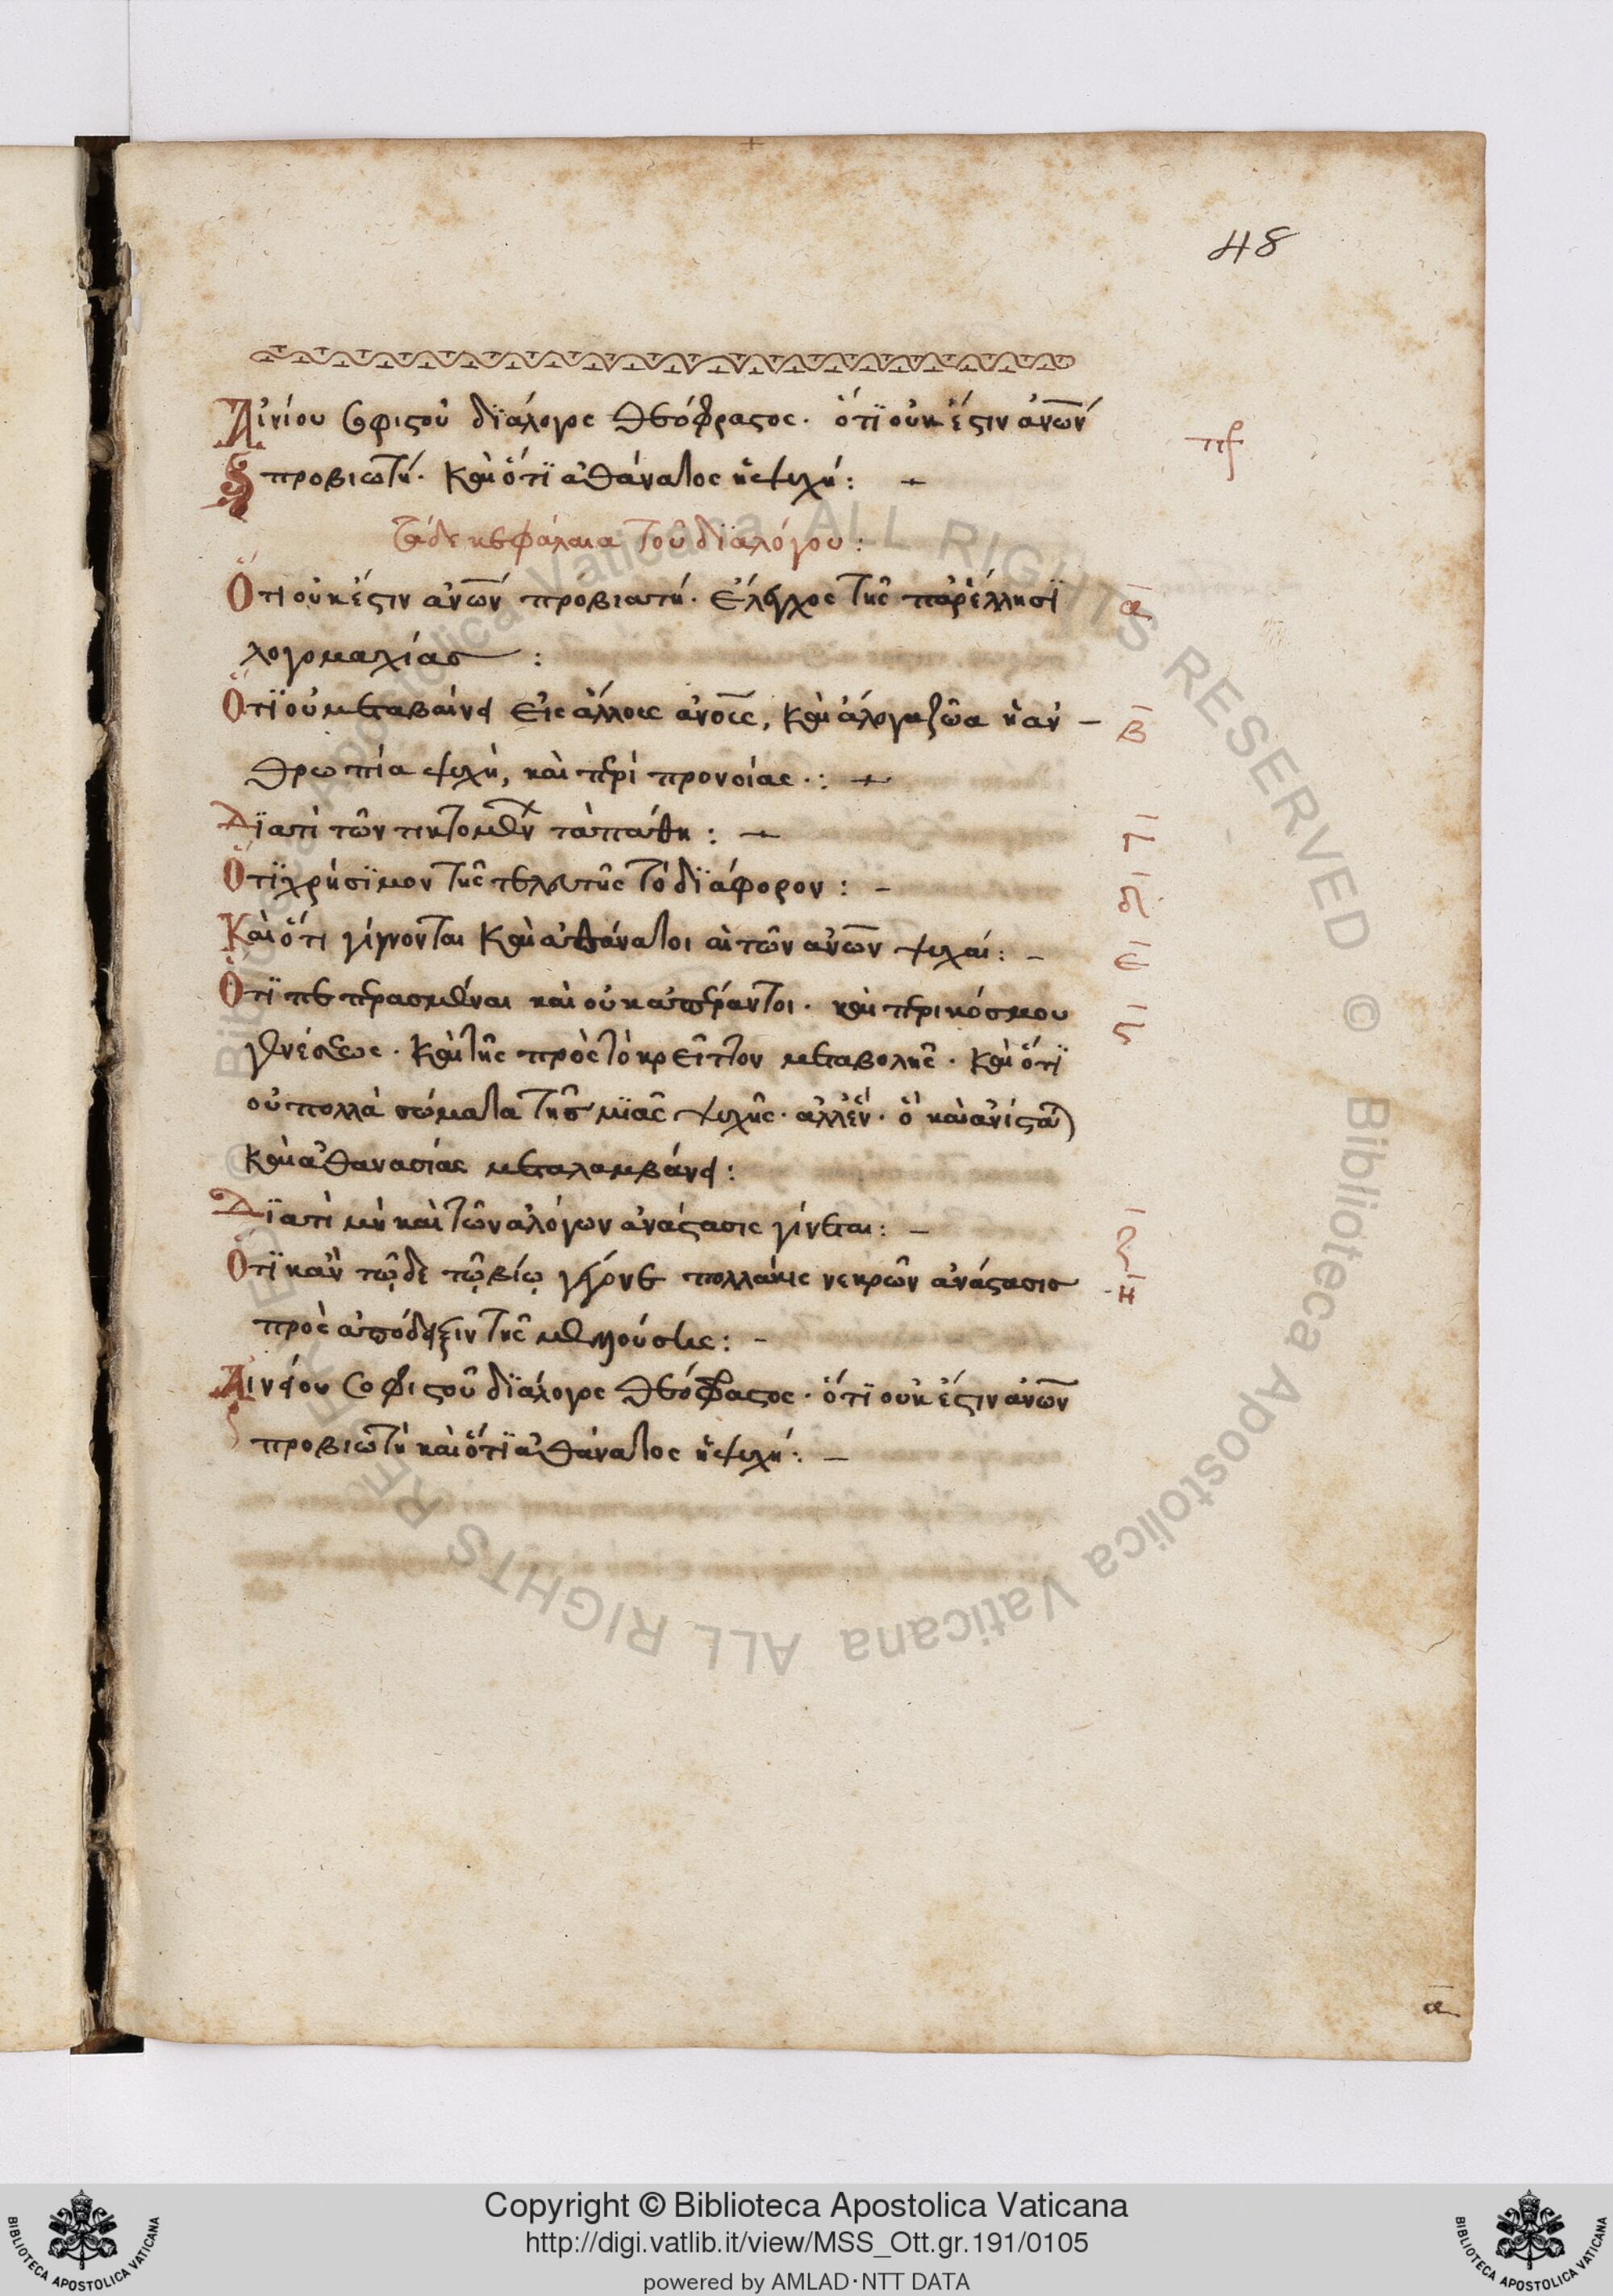 48
Αἰνίου σοφιστοῦ διάλογος Θεόφραστος. ὅτι οὐκ ἔστιν ἀνων
προβιωτή. καὶ ὅτι ἀθάνατος ἡ ψυχή:
τάδε κεφάλαια τοῦ διαλόγου:
Ὅτι οὐκ ἔστιν ἀνων προβιοτή. ἔλεγχος τῆς παρ ἕλλησι α
λογομαχίας:
Ὅτι οὐ μεταβαίνει εἰς ἄλλους ἀνους, καὶ ἄλογα ζῶα ἡ ἀν β
θρωπία ψυχή, καὶ περὶ προνοίας.:
Διατὶ τῶν τικτομένων τὰ πάθη: γ
Ὅτι χρήσιμον τῆς τελευτῆς τὸ διάφορον: δ
Καὶ ὅτι γίγνονται καὶ ἀθάνατοι αἱ τῶν ἀνων ψυχαί: ε
Ὅτι πεπερασμέναι καὶ οὐκ ἀπέραντοι. καὶ περὶ κόσμου ϛ
γενέσεως. καὶ τῆς πρὸς τὸ κρεῖττον μεταβολῆς. καὶ ὅτι
οὐ πολλὰ σώματα τῆς μιᾶς ψυχῆς. ἀλλ' ἕν. ὃ καὶ ἀνίσταται
καὶ ἀθανασίας μεταλαμβάνει:
Διατὶ μὴ καὶ τῶν ἀλόγων ἀνάστασις γίνεται: ζ
Ὅτι κἀν τῷδε τῷ βίῳ γέγονε πολλάκις νεκρῶν ἀνάστασις η
πρὸς ἀπόδειξιν τῆς μελλούσης:
Αἰνείου σοφιστοῦ διάλογος Θεόφραστος. ὅτι οὐκ ἔστιν ἀνων
προβιωτὴ καὶ ὅτι ἀθάνατος ἡ ψυχή:
α
© Biblioteca Apostolica Vaticana ALL RIGHTS RESERVED © Biblioteca Apostolica Vaticana ALL RIGHTS RESERVED
BIBLIOTECA APOSTOLICA VATICANA
Copyright © Biblioteca Apostolica Vaticana
http://digi.vatlib.it/view/MSS_Ott.gr.191/0105
powered by AMLAD·NTT DATA
BIBLIOTECA APOSTOLICA VATICANA